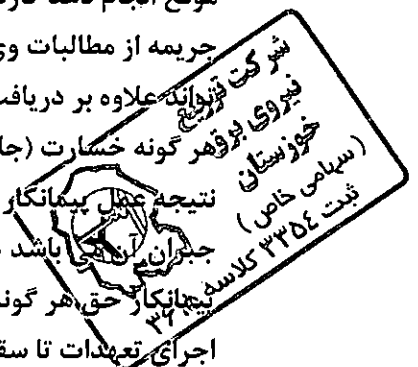 موقع انجام دهد کار
جریمه از مطالبات وی
تواند علاوه بر دریافت
هر گونه خسارت (جا
نتیجه عمل پیمانکار
جبران آن می باشد
پیمانکار حق هر گونه
اجرای تعهدات تا سق
شرکت توزیع
نیروی برق
خوزستان
(سهامی خاص)
ثبت ۳۳۵۴ کلاسه